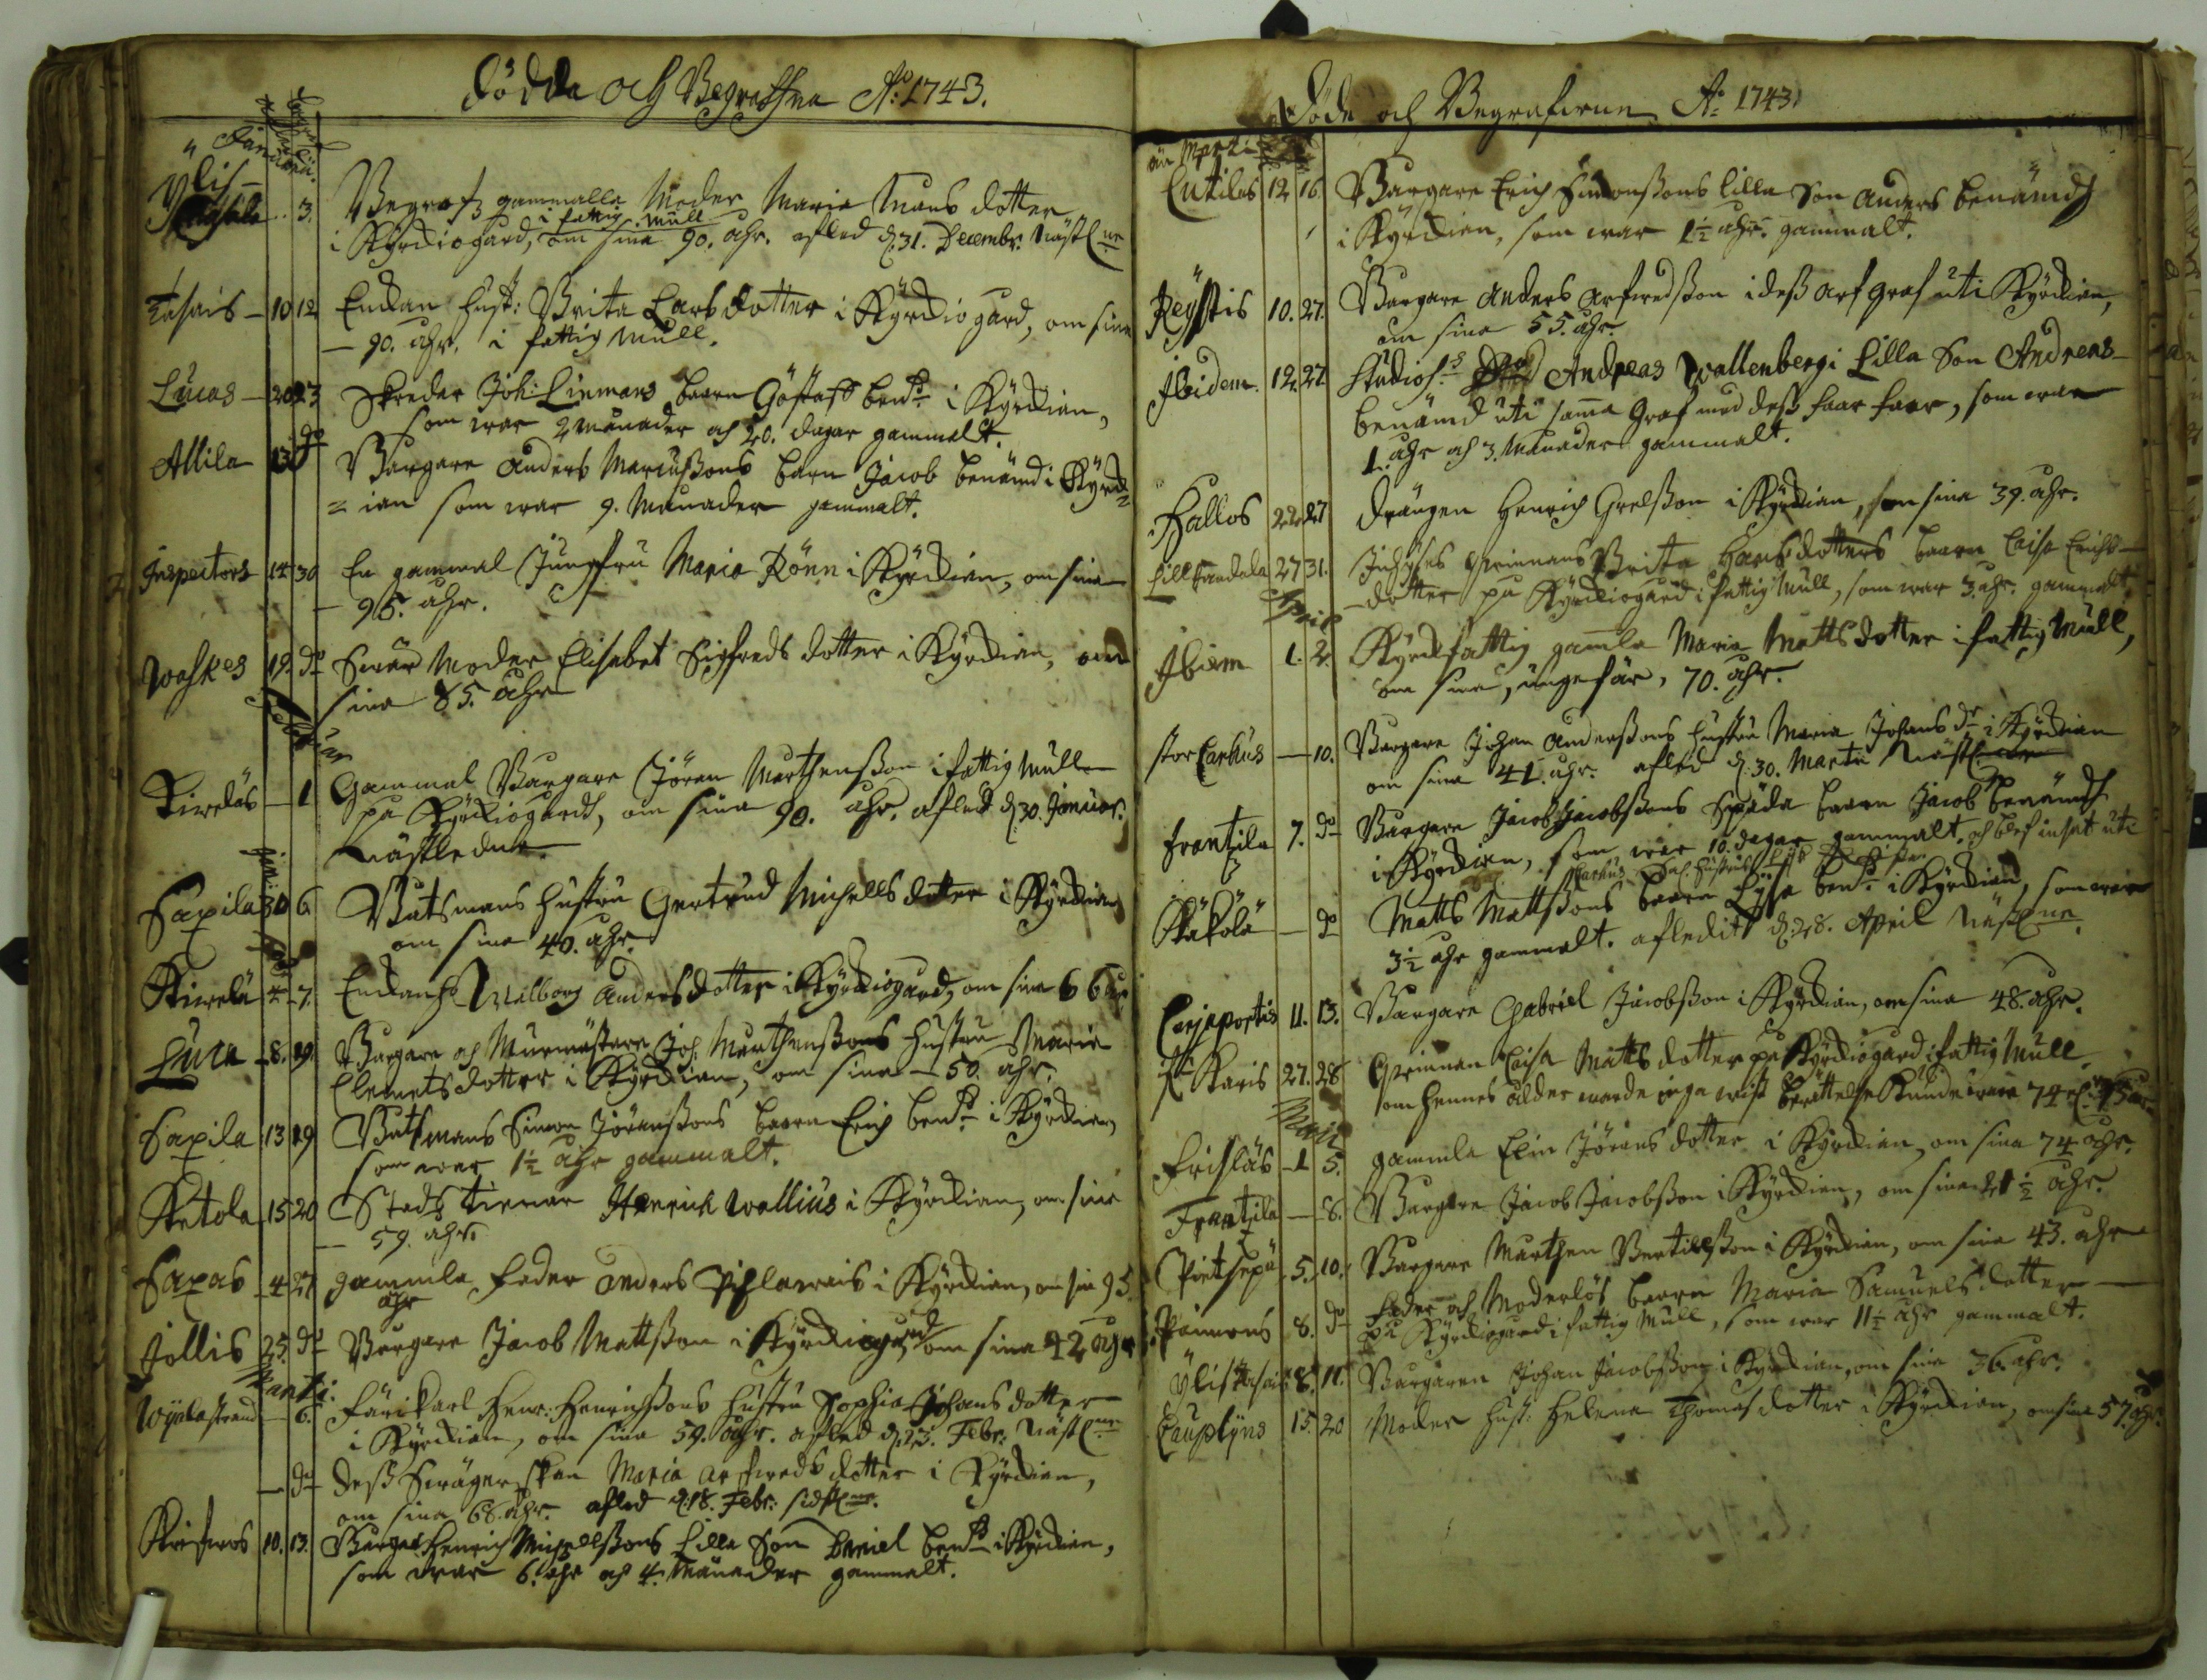 Dödde och Begrafne A:o 1743.
Januarii
Ylis 3. Begrofz gammalla Moder Maria dotter
i fattig mull
i Kyrkiogård, om sine 90. åhr. afled d. 31. Decembr: Nästl:ne
Tasais 10 12 Enckan Hust: Brita Larsdotter i Kyrkiogård, om sine
90. åhr. i fattig mull.
Lucas 20 23 Skredar Joh: Linmans barn Göstaff ben:d i Kyrckian,
som war 2 månader och 20. dagar gammalt.
Allila 13 d:o Borgare Anders Marcussons barn Jacob benämd i Kyrck=
=ian som war 9. Månader gammalt.
Inspectors 14 30 En gammal Jungfru Maria Rönn i Kyrckian, om sine
95. åhr.
Waskes 19 d:o Swär Moder Elisabet Sigfreds dotter i Kyrckian, om
sine 85. åhr
Februar
1 Gammal Borgare Jören Mårthensson i fattig mull
på Kyrkiogård, om sine 90. åhr. afled d. 30. Januar.
Nästledne.
Saxila 30 6 Båtsmans hustru Gertrud Michells dotter i Kyrckian
om sine 40. åhr.
Kiwelä 4 7. Enckan Walborg Andersdotter i Kyrkiogård, om sine 66 åhr
Lura 8. 19. Borgare och Murmästare Joh: Mårthenssons hustru Maria
Clemetsdotter i Kyrckian, om sine 50. åhr.
Saxila 13 19 Båtsmans Simon Jöranssons barn Erich ben:d i Kyrckian
som war 1½ åhr gammalt.
Ketola 15 20 Stads tienar Henrich Wallius i Kyrckian, om sine
59. åhr.
Saxas 4 27 gammle Fader Anders i Kyrckian, om sin 95
åhr
Jollis 25. d:o Borgare Jacob Mattsson i Kyrkiogård om sine 42 åhr
Martii.
6. Färikarl Henr: Henrichssons hustru Sophia Johans dotter
i Kyrckian, om sine 59. åhr. afled d. 23. Febr: Nästl:ne
d:o Dess Swägerskan Maria Arfwedsdotter i Kyrckian,
om sine 68. åhr. afled d. 18. Febr: sidstl:ne.
10. 13. Borgar Henrich Michellssons Lilla Son Daniel ben:d i Kyrckian,
som war 6. åhr och 4. Månader gammalt.
Döde och Begrafwne A:o 1743
Martii
Lutilas 12 16. Borgare Erich Simonssons lilla Son Anders benämd
i Kyrckian, som war 1½ åhr. gammalt.
10. 27. Borgare Anders Arfwedsson i dess arf graf uti Kyrckian,
om sine 55. åhr.
Ibidem. 12 27 Studios: Andreas Wallenbergi Lilla Son Andreas
benämd uti samma Graf med dess faar faar, som war
1. åhr och 3. Månader gammalt.
Hallos 22 27 Drängen Henrich Grelsson i Kyrckian, om sine 39. åhr.
27 31. Inhyses qwinnans Brita Hansdotters barn Caisa Erichs-
dotter på Kyrkiogård i fattig Mull, som war 3. åhr. gammalt.
April
1. 2. Kyrckfattig gamle Maria Mattsdotter i fattig Mull,
om sine, ungefär, 70. åhr.
Stor Carhus 10. Borgare Johan Anderssons hustru Maria Johans d:r i Kyrckian
om sine 41. åhr. afled d. 30. Martii Nästl:ne
Frantzila 7. d:o Borgare Jacob Jacobssons Späda barn Jacob benämd
i Kyrckian, som war 10. dagar gammalt, och blef insat uti
Matts Mattssons barn Lijsa ben:d i Kyrckian, som war
3½ åhr gammalt. afledit d. 28. April Nästl:ne.
Carjaportis 11. 13. Borgare Gabriel Jacobsson i Kyrckian, om sine 48. åhr.
Karis 27. 28 Qwinnan Caisa Matts dotter på Kyrkiogård i fattig Mull
om hennes ålder warde inga wist berättelse kunde wara 74 el: 75 åhr
Maji
Erichläs 1 5. gammle Elin Jörans dotter i Kyrckian, om sine 74 åhr.
Frantzila 8. Borgare Jacob Jacobsson i Kyrckian, om sine ½ åhr.
5. 10. Borgare Mårthen Bertillsson i Kyrckian, om sine 43. åhr
8. d:o Fader och Moderlös barn Maria Samuels dotter
på Kyrkiogård i fattig Mull, som war 11½ åhr gammalt.
Ylistasais 8. 11. Borgaren Johan Jacobsson i Kyrckian, om sine 36 åhr.
15. 20 Moder Hust: Helena Thomasdotter i Kyrckian, om sine 57. åhr.